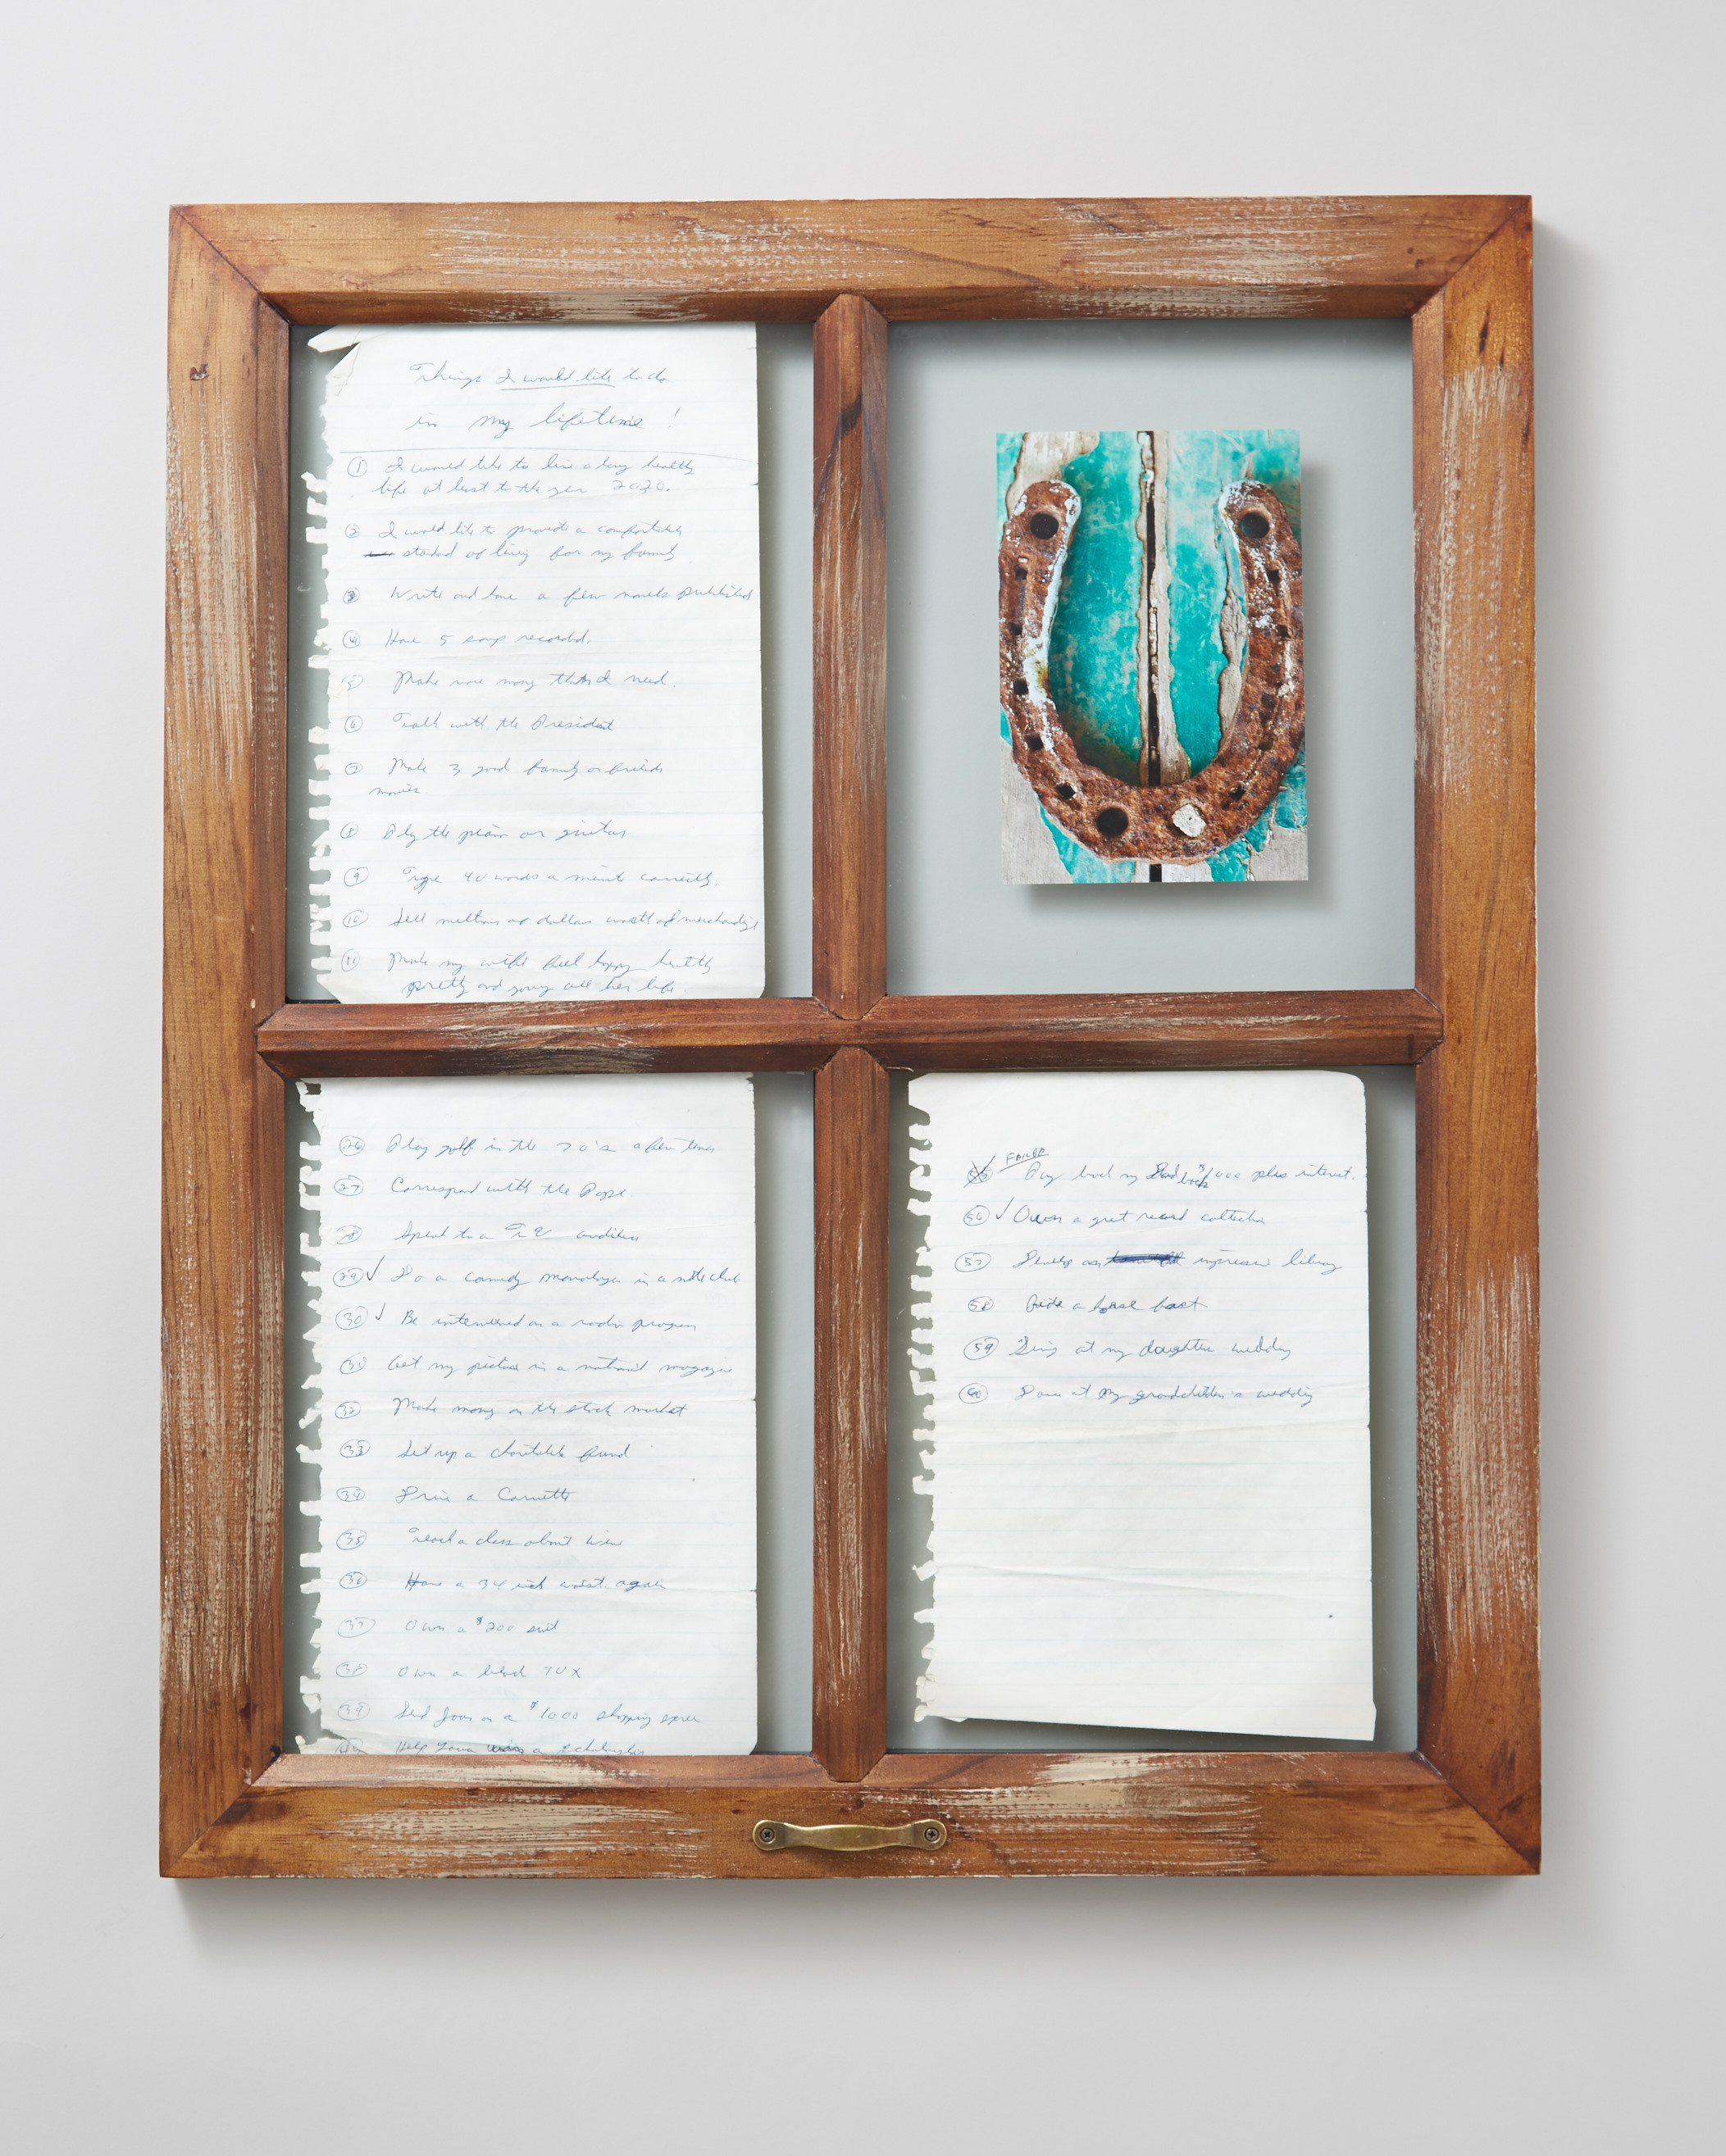 Things I would like to do
in my lifetime!
1 I would like to live a long healthy
life at least to the year 2020.
2 I would like to provide a comfortable
standard of living for my family
3 Write and have a few novels published
4 Have 5 songs recorded.
5 Make more money than I need.
6 Talk with the President
7 Make 3 good family or friends
movies
8 Play the piano or guitar
9 Type 40 words a minute correctly.
10 Sell millions of dollars worth of merchandise
11 Make my wife feel happy healthy
pretty and young all her life.
26 Play golf in the 70's a few times
27 Correspond with the Pope.
28 Speak to a TV audience
29 ✓ Do a comedy monologue in a nite club
30 ✓ Be interviewed on a radio program
31 Get my picture in a national magazine
32 Make money in the stock market
33 Set up a charitable fund
34 Drive a Corvette
35 Teach a class about wine
36 Have a 34 inch waist again
37 Own a $200 suit
38 Own a black TUX
39 Send Joan on a $1000 shopping spree
40 Help win a scholarship
FAILED
55 Pay back my Dad back $1000 plus interest.
56 ✓ Own a great record collection
57 Develop an impressive library
58 Ride a horse fast
59 Sing at my daughters wedding
60 Dance at my grandchildren's wedding